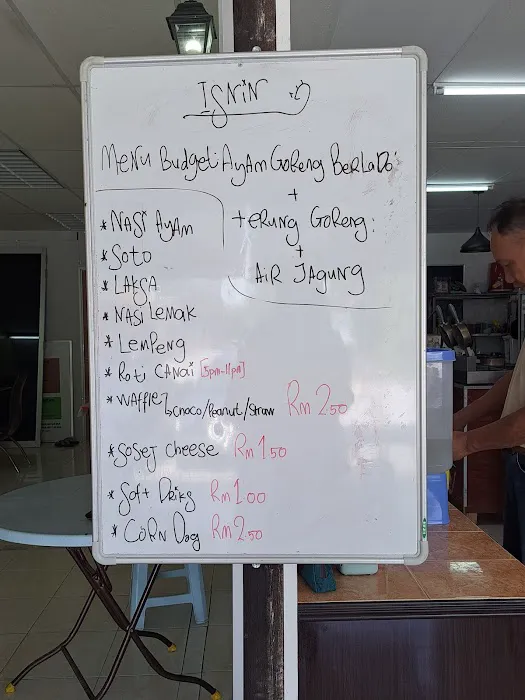 ISNIN :)
MENU Budget: AYAM GORENG BERLADO'
+
TERUNG GORENG:
+
AIR JAGUNG
* NASI AYAM
* SOTO
* LAKSA
* NASI LEMAK
* LEMPENG
* ROTI CANAI [5pm-11pm]
* WAFFLE
CHOCO/PEANUT/STRAW RM 2.50
* SOSEJ CHEESE RM 1.50
* SOFT DRIKS RM 1.00
* CORN DOG RM 2.50